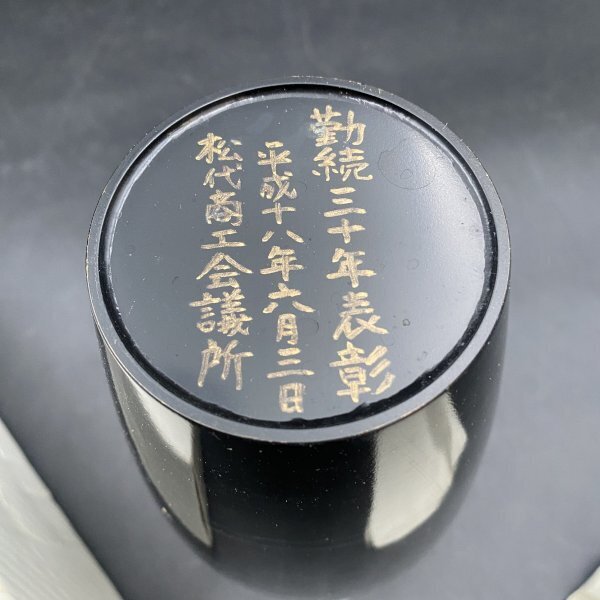 勤続三十年表彰
平成十八年六月三日
松代商工会議所